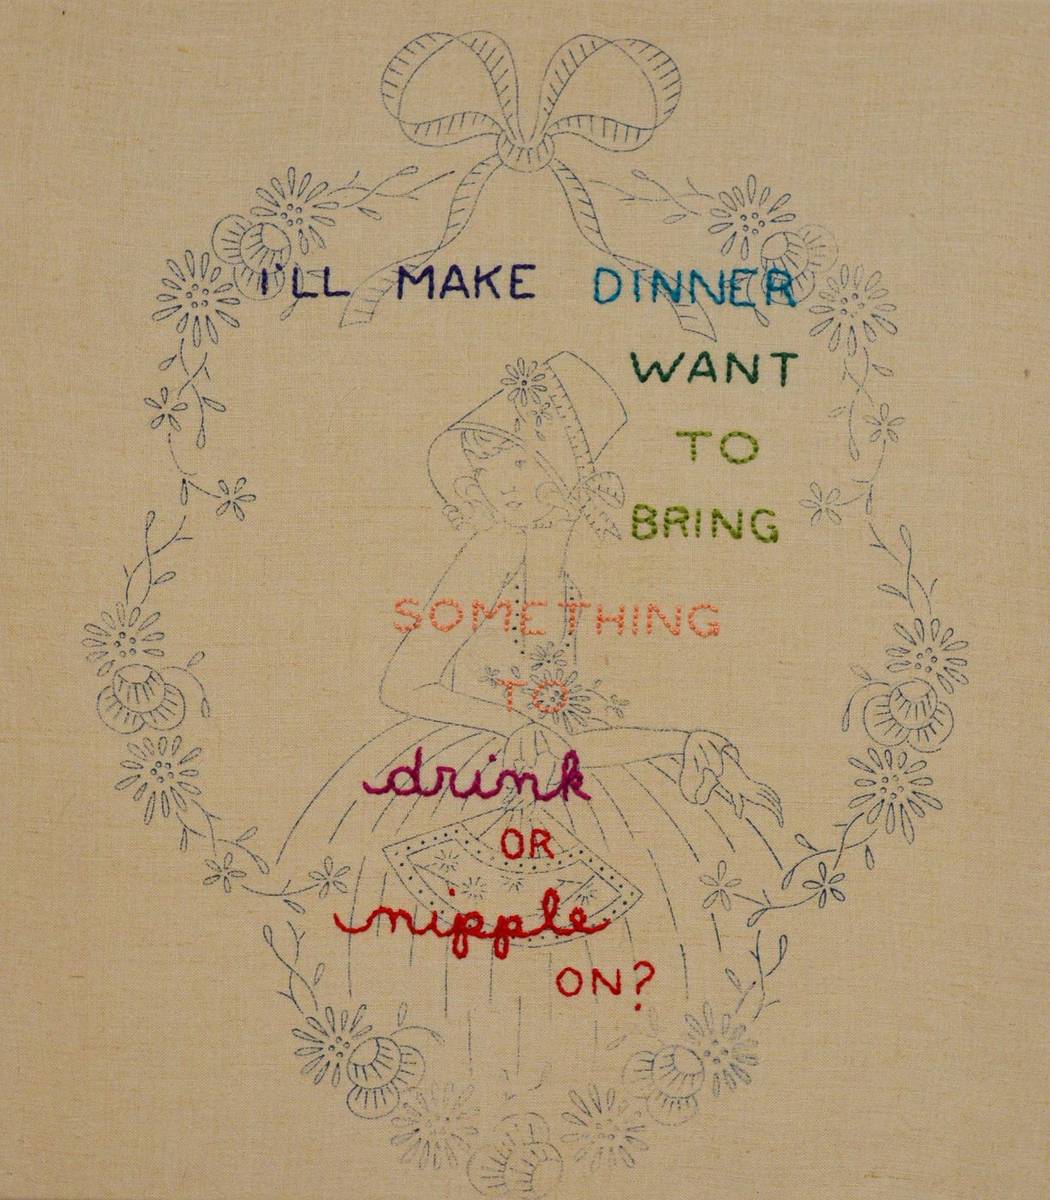 I'LL MAKE DINNER
WANT
TO
BRING
SOMETHING
TO
drink
OR
nipple
ON?